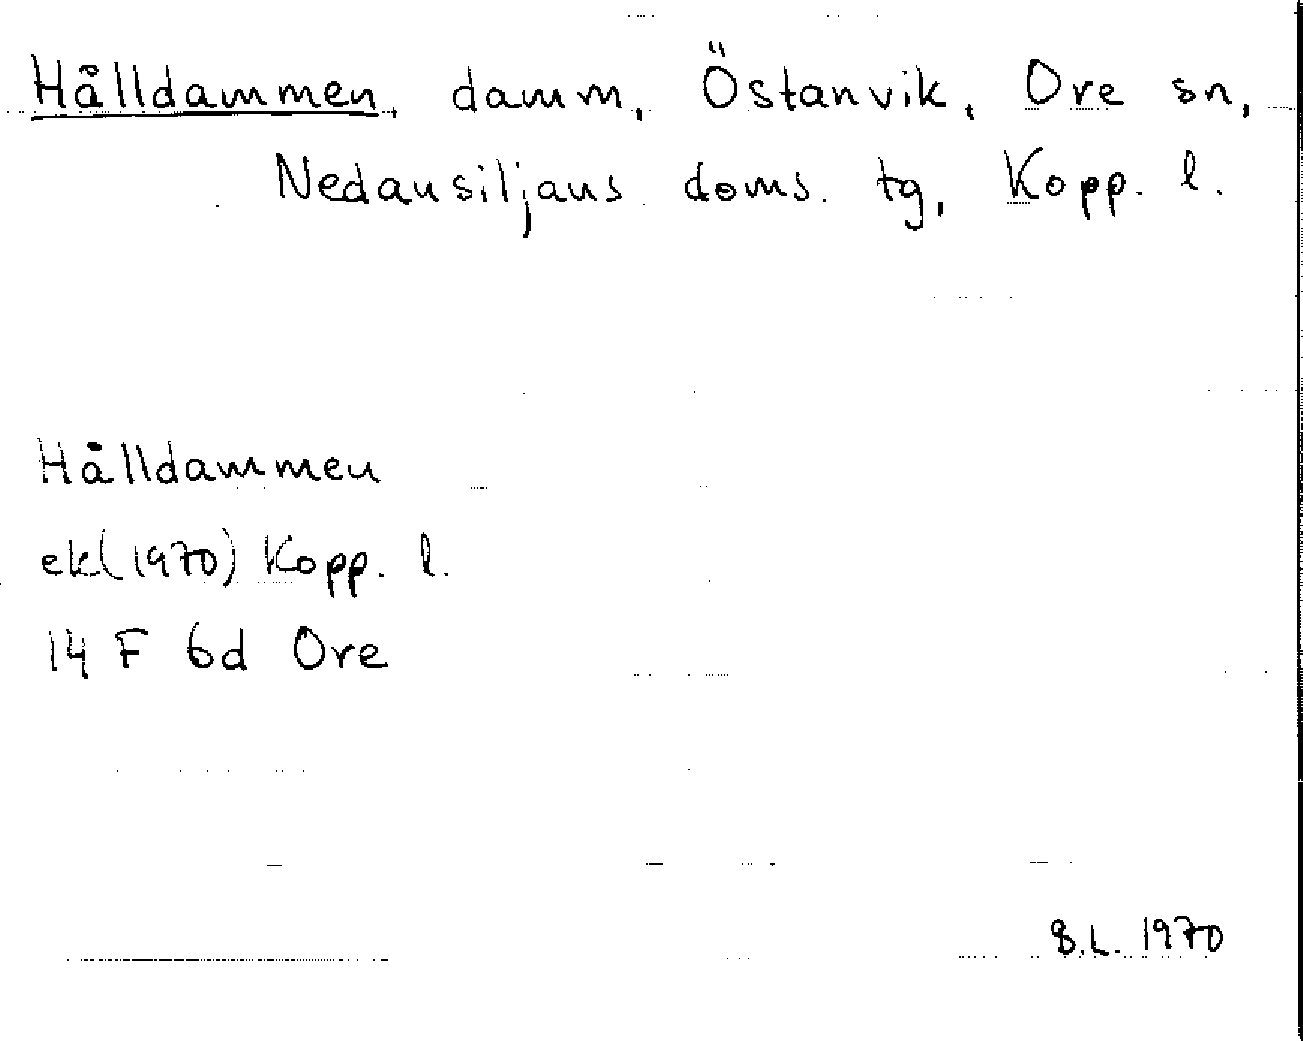 Hålldammen, damm, Östanvik, Ore sn,
Nedansiljans doms. tg, Kopp. l.
Hålldammen
ek(1970) Kopp. l.
14 F 6d Ore
S.L. 1970